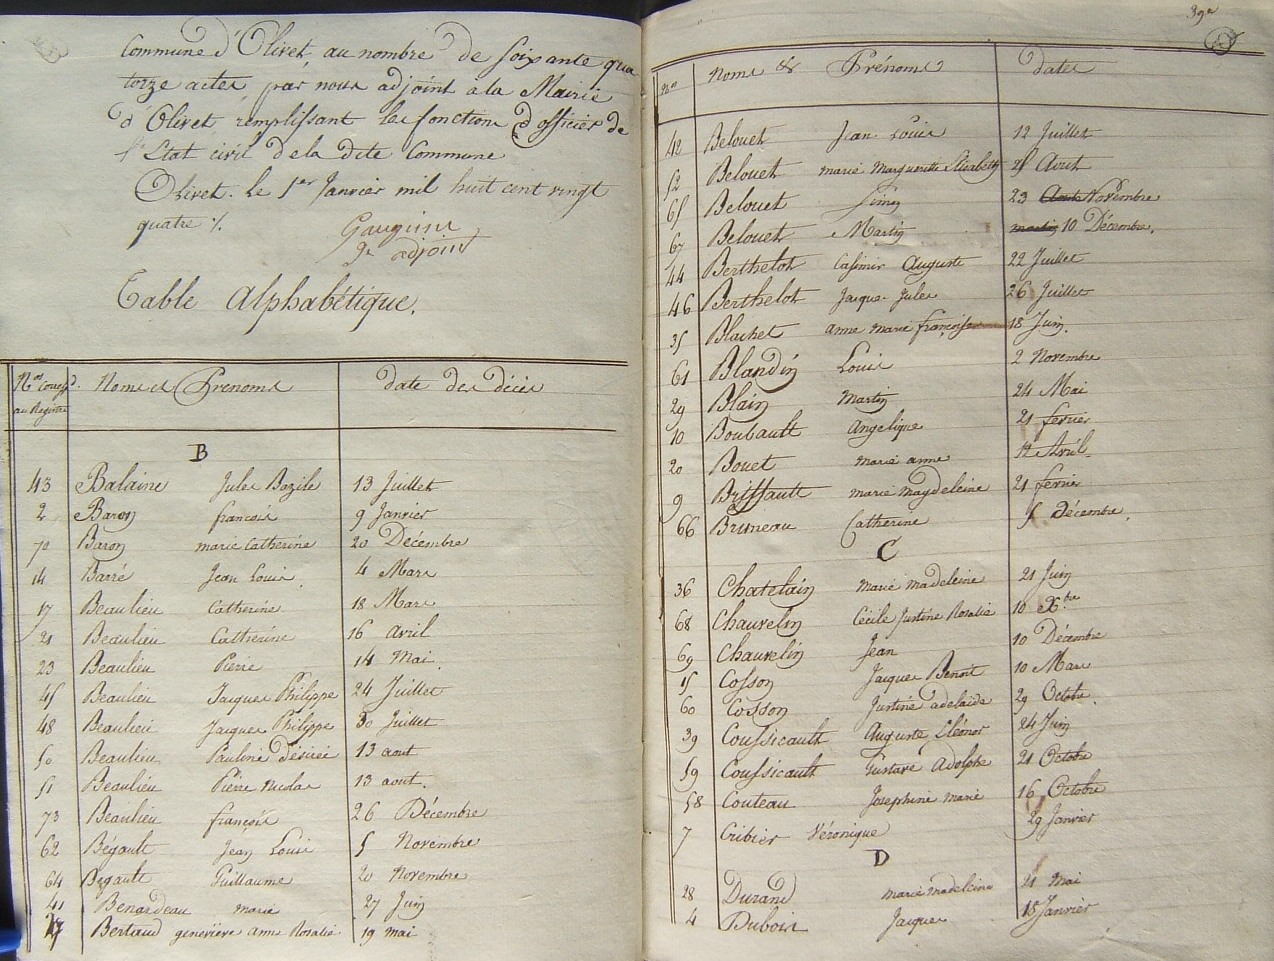 Commune d'Olivet, au nombre de soixante qua
torze actes, par nous adjoint a la Mairie
d'Olivet remplissant les fonctions d'officier de
l'Etat civil de la dite Commune
Olivet. le 1er Janvier mil huit cent vingt
quatre ./.
Gauguin
adjoint
Table Alphabétique.
Nos Noms et Prenoms date des décès
au Registre
B
43 Balaine Jules Bazile 13 Juillet
2 Baron françois 9 Janvier
70 Baron marie Catherine 20 Décembre
14 Barré Jean Louis 4 Mars
17 Beaulieu Catherine 18 Mars
21 Beaulieu Catherine 16 avril
23 Beaulieu Pierre 14 Mai.
45 Beaulieu Jacques Philippe 24 Juillet
48 Beaulieu Jacques Philippe 30 Juillet
50 Beaulieu Pauline désirée 13 aout
51 Beaulieu Pierre Nicolas 13 aout.
73 Beaulieu françois 26 Décembre
62 Bégault Jean Louis 5 Novembre
64 Bégault Guillaume 20 Novembre
41 Benardeau marie 27 Juin
Bertaud geneviève anne Rosalie 19 mai
39
Nos Noms & Prénoms dates
42 Belouet Jean Louis 12 Juillet
52 Belouet marie Margueritte Elisabeth 21 Aout
65 Belouet Simon 23 Novembre
67 Belouet Martin 10 Décembre.
44 Berthelot Casimir Auguste 22 Juillet
46 Berthelot Jacques Jules 26 Juillet
35 Blachet anne marie françoise 18 Juin.
61 Blandin Louis 2 Novembre
29 Blain Martin 24 Mai
10 Boubault Angelique 21 fevrier
20 Bouet marie anne 12 Avril
9 Briffault marie magdeleine 21 fevrier
66 Bruneau Catherine 5 Décembre.
C
36 Chatelain marie madeleine 21 Juin
68 Chauvelin Cécile Justine Rosalie 10 Xbre
69 Chauvelin Jean 10 Décembre
15 Cosson Jacques Benoit 10 Mars
60 Cosson Justine adelaide 29 Octobre
39 Coussicault Auguste Eléonor 24 Juin
59 Coussicault Gustave Adolphe 21 Octobre
58 Couteau Josephine marie 16 Octobre
7 Cribier Véronique 29 Janvier
D
28 Durand marie madeleine 21 Mai
4 Dubois Jacques 18 Janvier